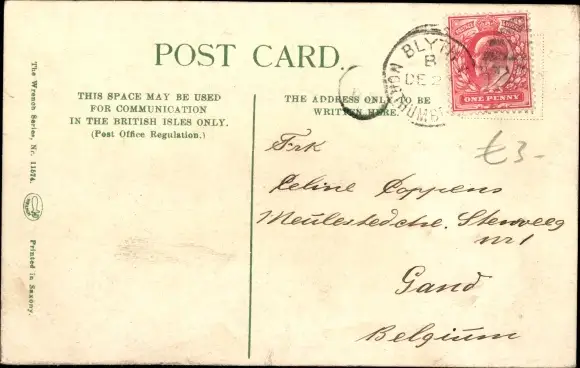 POST CARD.
THIS SPACE MAY BE USED
FOR COMMUNICATION
IN THE BRITISH ISLES ONLY.
(Post Office Regulation.)
THE ADDRESS ONLY TO BE
WRITTEN HERE.
The Wrench Series, Nr. 11574.
Printed in Saxony.
BLYTH
B
DE 2
NORTHUMBE
ONE PENNY
£3-
Frk
Celine Coppens
Meulestedche. Steenweg
nr 1
Gand
Belgium